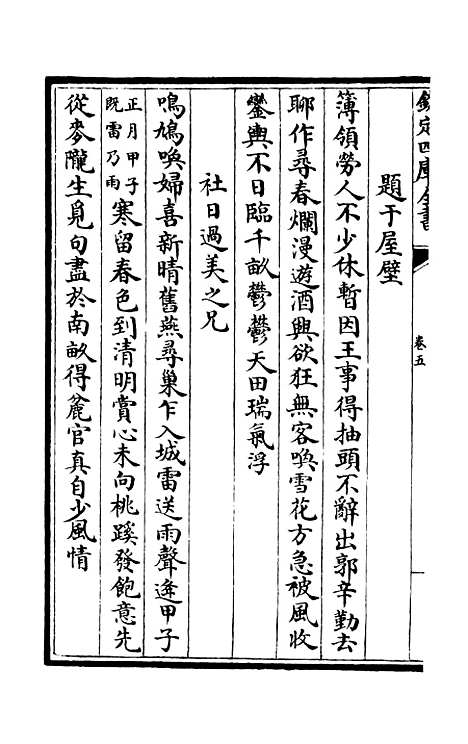 欽定四庫全書
卷五
題于屋壁
簿領勞人不少休暫因王事得抽頭不辭出郭辛勤去
聊作尋春爛漫遊酒興欲狂無客喚雪花方急被風收
鑾輿不日臨千畝鬱鬱天田瑞氣浮
社日過美之兄
鳴鳩喚婦喜新晴舊燕尋巢乍入城雷送雨聲逄甲子
正月甲子
既雷乃雨
寒留春色到清明賞心未向桃蹊發飽意先
從麥隴生覓句盡於南畝得麄官真自少風情